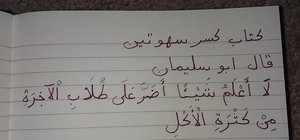 كتاب كسر سهوتين
قال ابو سليمان
لَا أَعْلَمُ شَيْئًا أَضَرُّ عَلَى طُلَّابِ الْآخِرَةِ
مِنْ كَثْرَةِ الْأَكْلِ